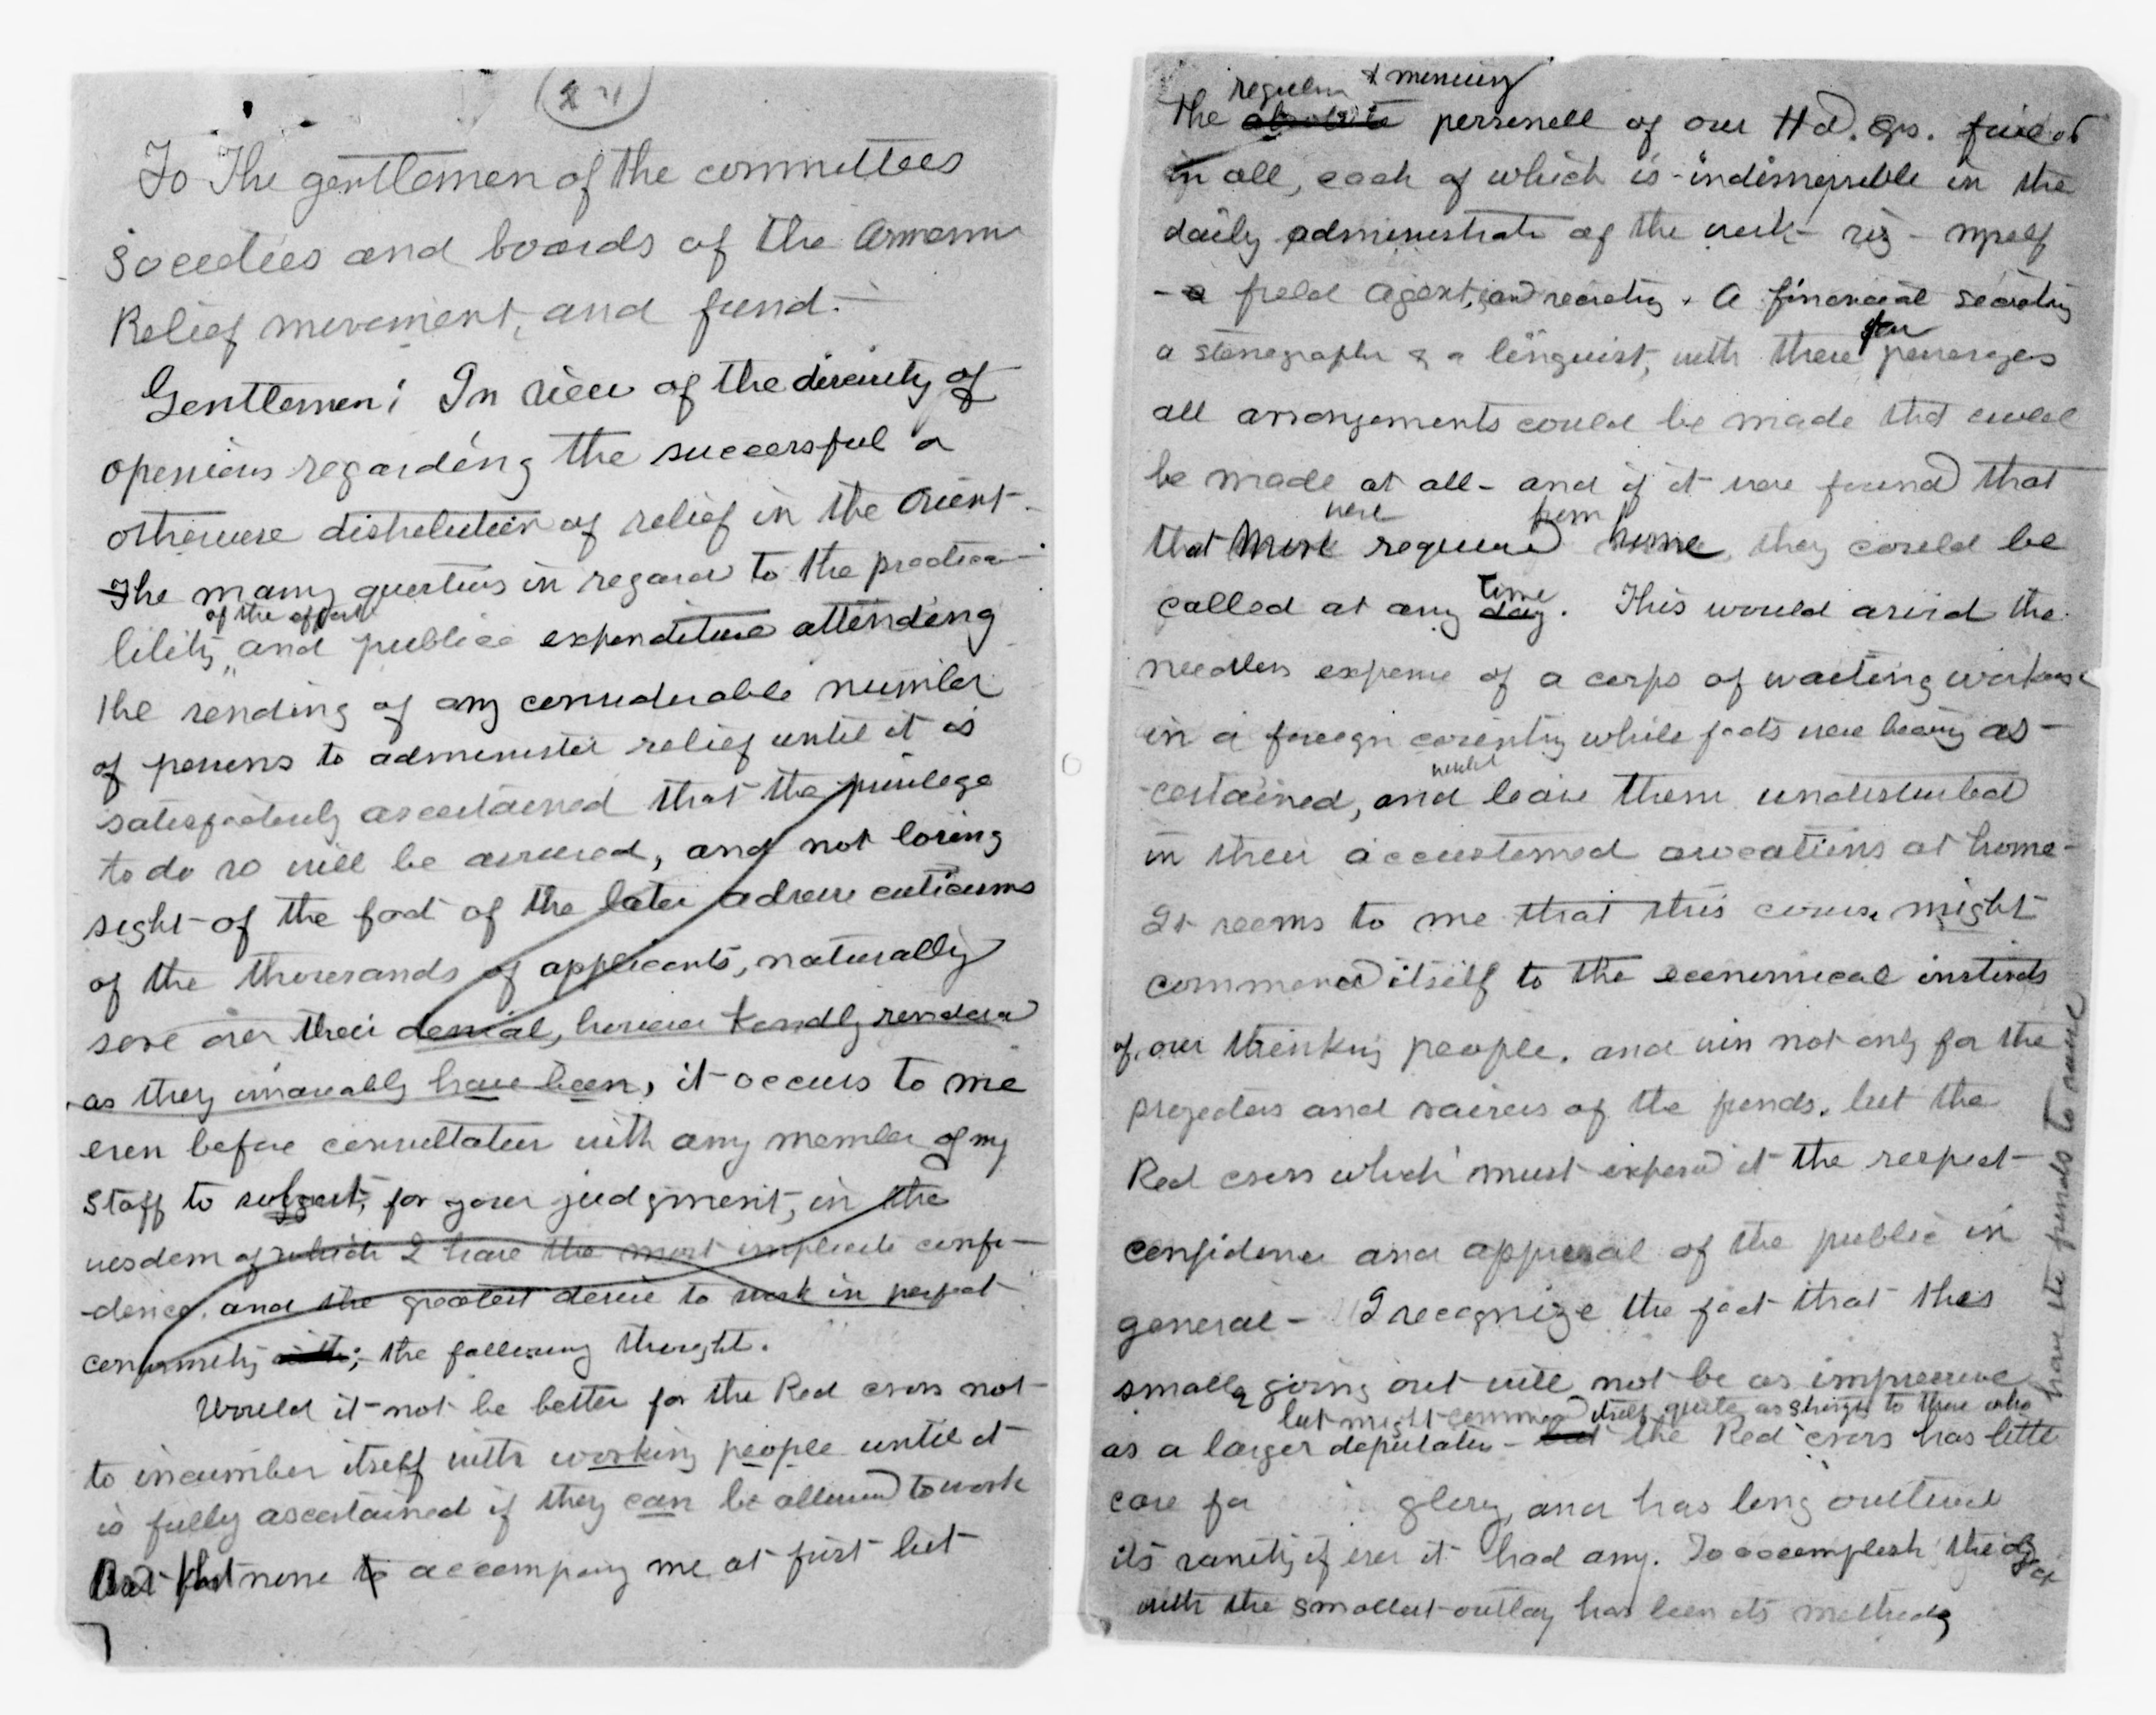 To The gentlemen of the committees
Societies and boards of the Armenian
Relief movement, and fund.
Gentlemen: In view of the diversity of
opinions regarding the successful or
otherwise distribution of relief in the Orient
The many questions in regard to the practica-
of the effort
bility, and public expenditure attending
the sending of any considerable number
of persons to administer relief until it is
satisfactorily ascertained that the privilege
to do so will be accorded, and not losing
sight of the fact of the later adverse criticisms
of the thousands of applicants, naturally
sore over their denial, however kindly rendered
as they invariably have been, it occurs to me
even before consultation with any member of my
Staff to suggest, for your judgment, in the
wisdom of which I have the most implicit confi-
-dence, and the greatest desire to work in perfect
conformity with; the following thought.
Would it not be better for the Red cross not
to incumber itself with working people until it
is fully ascertained if they can be allowed to work
But that none to accompany me at first but
regular &
The absolute personell of our Hd. Qrs. five
in all, each of which is indispensible in the
daily administrate of the work - viz - myself
- a field Agent, and secretary. A financial secretary
for
a stenographer & a linguist, with these passages
all arrangements could be made that could
be made at all - and if it were found that
were from
that More required home, they could be
time
called at any day. This would avoid the
needless expense of a corps of waiting workers
in a foreign country while facts were being as-
would
-certained, and leave them undisturbed
in their accustomed avocations at home -
It seems to me that this course might
commend itself to the economical instincts
of our thinking people, and win not only for the
projectors and raisers of the funds, but the
Red cross which must expend it the respect
confidence and approval of the public in
general - I recognize the fact that this
smaller going out will not be as impressive
but might commend itself quite as strongly to those who
have the funds to raise
as a larger deputation - but the Red cross has little
care for glory, and has long outlived
its vanity if ever it had any. To accomplish the object
with the smallest outlay has been its methods